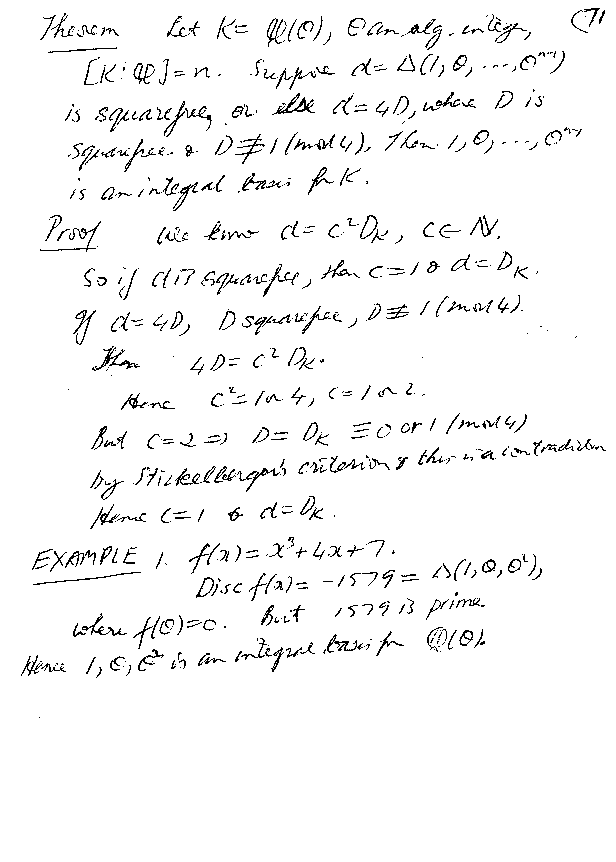 Theorem Let K = Q(θ), θ an alg. integer, 71
[K:Q] = n. Suppose d = Δ(1, θ, ..., θⁿ⁻¹)
is squarefree, or else d = 4D, where D is
squarefree & D ≢ 1 (mod 4). Then 1, θ, ..., θⁿ⁻¹
is an integral basis for K.
Proof We know d = c²D_K, c ∈ N.
So if d is squarefree, then c = 1 & d = D_K.
If d = 4D, D squarefree, D ≢ 1 (mod 4).
Then 4D = c² D_K.
Hence c² = 1 or 4, c = 1 or 2.
But c = 2 ⇒ D = D_K ≡ 0 or 1 (mod 4)
by Stickelberger's criterion & this is a contradiction
Hence c = 1 & d = D_K.
EXAMPLE 1. f(x) = x³ + 4x + 7.
Disc f(x) = -1579 = Δ(1, θ, θ²),
where f(θ) = 0. But 1579 is prime.
Hence 1, θ, θ² is an integral basis for Q(θ).